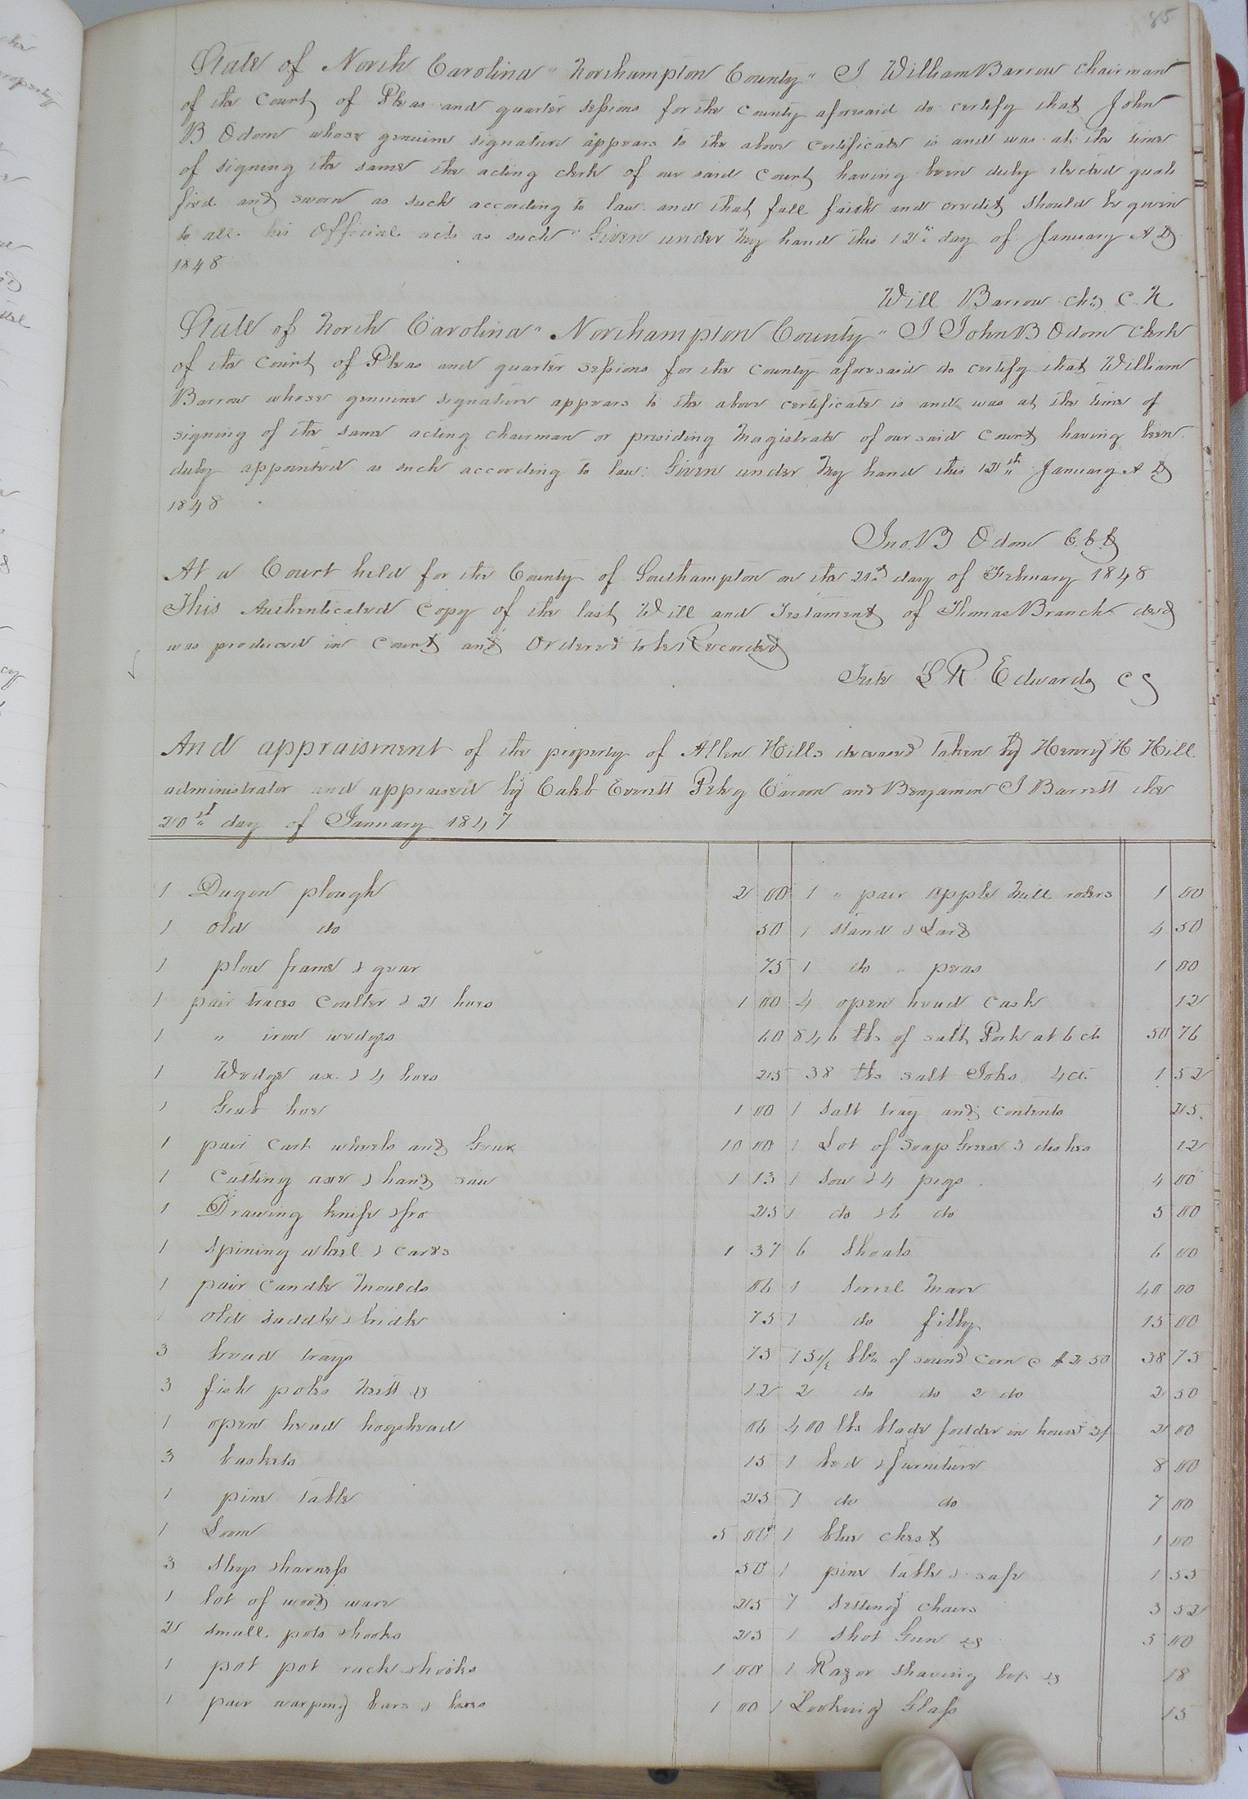 85
State of North Carolina " Northampton County " I William Barrow Chairman
of the Court of Pleas and quarter sessions for the County aforesaid do certify that John
B Odom whose genuine signature appears to the above certificate is and was at the time
of signing the same the acting clerk of our said Court having been duly elected quali
fied and sworn as such according to law and that full faith and credit should be given
to all his Official acts as such " Given under My hand this 12th day of January A D
1848
Will Barrow Chn C. N
State of North Carolina " Northampton County " I John B Odom Clerk
of the Court of Pleas and quarter sessions for the County aforesaid do certify that William
Barrow whose genuine signature appears to the above certificate is and was at the time of
signing of the same acting chairman or presiding Magistrate of our said Court having been
duly appointed as such according to law: Given under My hand this 12th January A D
1848
Jno B Odom C.C.C
At a Court held for the County of Southampton on the 21st day of February 1848
This Authenticated Copy of the last Will and Testament of Thomas Branch decd
was produced in Court and Ordered to be Recorded
Teste L R Edwards C S
And appraisment of the property of Allen Hills deceased taken by Henry H Hill
administrator and appraised by Calib Everitt Benjamin J Barrett the
20st day of January 1847
1 Dagon plough 2 00 1 " pair apple Mill rolers 1 00
1 old do 50 1 stand & Lard 4 50
1 plow frame & gear 75 1 do " peas 1 00
1 pair traces Coulter & 2 hoes 1 00 4 open head Cask 12
1 " iron wedges 60 846 lbs of salt Pork at 6 cts 50 76
1 Wedge ax & 4 hoes 25 38 lbs salt Joles 4ct 1 52
1 Grub hoe 1 00 1 Salt tray and contents 25
1 pair Cart wheels and Gear 10 00 1 Lot of soap Grease & dishes 12
1 Cutting axe & hand saw 1 13 1 Sow & 4 pigs 4 00
1 Drawing knife & fro 25 1 do & 6 do 5 00
1 Spining wheel & cards 1 37 6 Shoats 6 00
1 pair Candle Moulds 06 1 Sorrel Mare 40 00
1 old saddle & bridle 75 1 do filley 15 00
3 bread trays 75 15½ bbls of sound Corn @ $2 50 38 75
3 fish poles Nett &c 12 2 do do 2 do 2 50
1 open head hogshead 06 400 lbs blade fodder in house 2 00
3 baskets 15 1 bed & furniture 8 00
1 pine table 25 1 do do 7 00
1 Loom 5 00 1 blue chest 1 00
3 Slays & harness 50 1 pine table & safe 1 55
1 lot of wood ware 25 7 setting chairs 3 52
2 small pots & hooks 25 1 shot Gun &c 5 00
1 pot pot rack & hooks 1 00 1 Razor shaving box &c 18
1 pair warping bars & boxes 1 00 1 Looking Glass 15